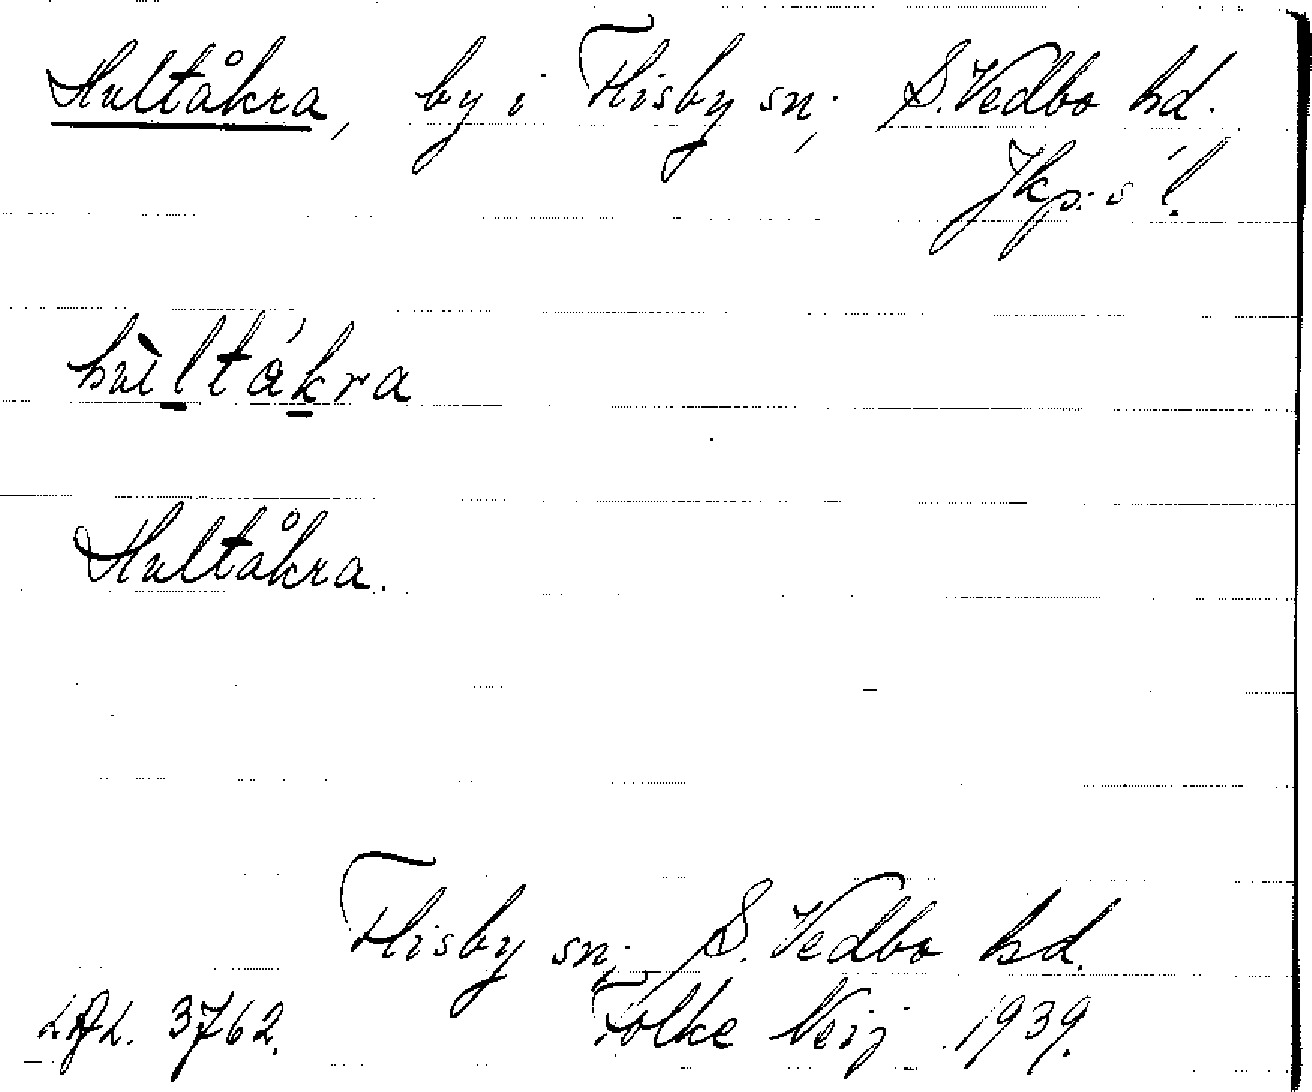 Hultåkra, by i Flisby sn; S. Vedbo hd.
Jkp:s l.
hùltákra
Hultåkra.
Flisby sn; S. Vedbo hd.
3762. Folke Neij 1939.